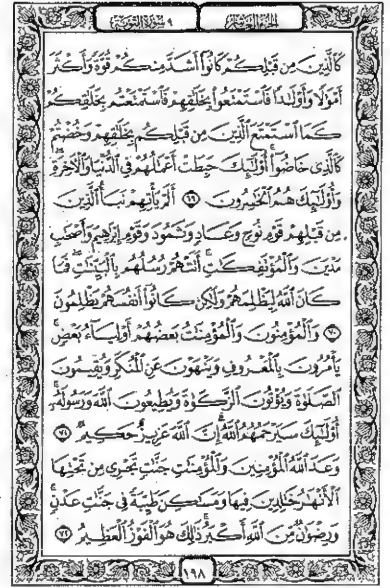 الجزء العاشر
٩ سورة التوبة
كَٱلَّذِينَ مِن قَبْلِكُمْ كَانُوٓا۟ أَشَدَّ مِنكُمْ قُوَّةً وَأَكْثَرَ
أَمْوَٰلًا وَأَوْلَٰدًا فَٱسْتَمْتَعُوا۟ بِخَلَٰقِهِمْ فَٱسْتَمْتَعْتُم بِخَلَٰقِكُمْ
كَمَا ٱسْتَمْتَعَ ٱلَّذِينَ مِن قَبْلِكُم بِخَلَٰقِهِمْ وَخُضْتُمْ
كَٱلَّذِى خَاضُوٓا۟ أُو۟لَٰٓئِكَ حَبِطَتْ أَعْمَٰلُهُمْ فِى ٱلدُّنْيَا وَٱلْءَاخِرَةِ
وَأُو۟لَٰٓئِكَ هُمُ ٱلْخَٰسِرُونَ ٦٩ أَلَمْ يَأْتِهِمْ نَبَأُ ٱلَّذِينَ
مِن قَبْلِهِمْ قَوْمِ نُوحٍ وَعَادٍ وَثَمُودَ وَقَوْمِ إِبْرَٰهِيمَ وَأَصْحَٰبِ
مَدْيَنَ وَٱلْمُؤْتَفِكَٰتِ أَتَتْهُمْ رُسُلُهُم بِٱلْبَيِّنَٰتِ فَمَا
كَانَ ٱللَّهُ لِيَظْلِمَهُمْ وَلَٰكِن كَانُوٓا۟ أَنفُسَهُمْ يَظْلِمُونَ
٧٠ وَٱلْمُؤْمِنُونَ وَٱلْمُؤْمِنَٰتُ بَعْضُهُمْ أَوْلِيَآءُ بَعْضٍ
يَأْمُرُونَ بِٱلْمَعْرُوفِ وَيَنْهَوْنَ عَنِ ٱلْمُنكَرِ وَيُقِيمُونَ
ٱلصَّلَوٰةَ وَيُؤْتُونَ ٱلزَّكَوٰةَ وَيُطِيعُونَ ٱللَّهَ وَرَسُولَهُۥٓ
أُو۟لَٰٓئِكَ سَيَرْحَمُهُمُ ٱللَّهُ إِنَّ ٱللَّهَ عَزِيزٌ حَكِيمٌ ٧١
وَعَدَ ٱللَّهُ ٱلْمُؤْمِنِينَ وَٱلْمُؤْمِنَٰتِ جَنَّٰتٍ تَجْرِى مِن تَحْتِهَا
ٱلْأَنْهَٰرُ خَٰلِدِينَ فِيهَا وَمَسَٰكِنَ طَيِّبَةً فِى جَنَّٰتِ عَدْنٍ
وَرِضْوَٰنٌ مِّنَ ٱللَّهِ أَكْبَرُ ذَٰلِكَ هُوَ ٱلْفَوْزُ ٱلْعَظِيمُ ٧٢
١٩٨